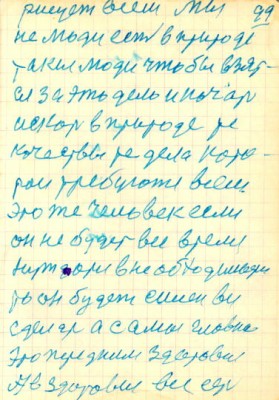 рисует всем Мы 99
не люди есть в природе
такии люди чтобы взят-
ся за это дело и начар
искор в природе ре
качествы ре дела кото-
рои требуготи всем
это же человек если
он не будет все время
в необходимос
ть он будет силен вы
сделер а самы главне
это перед ним здоровия
А в здоровии все сер